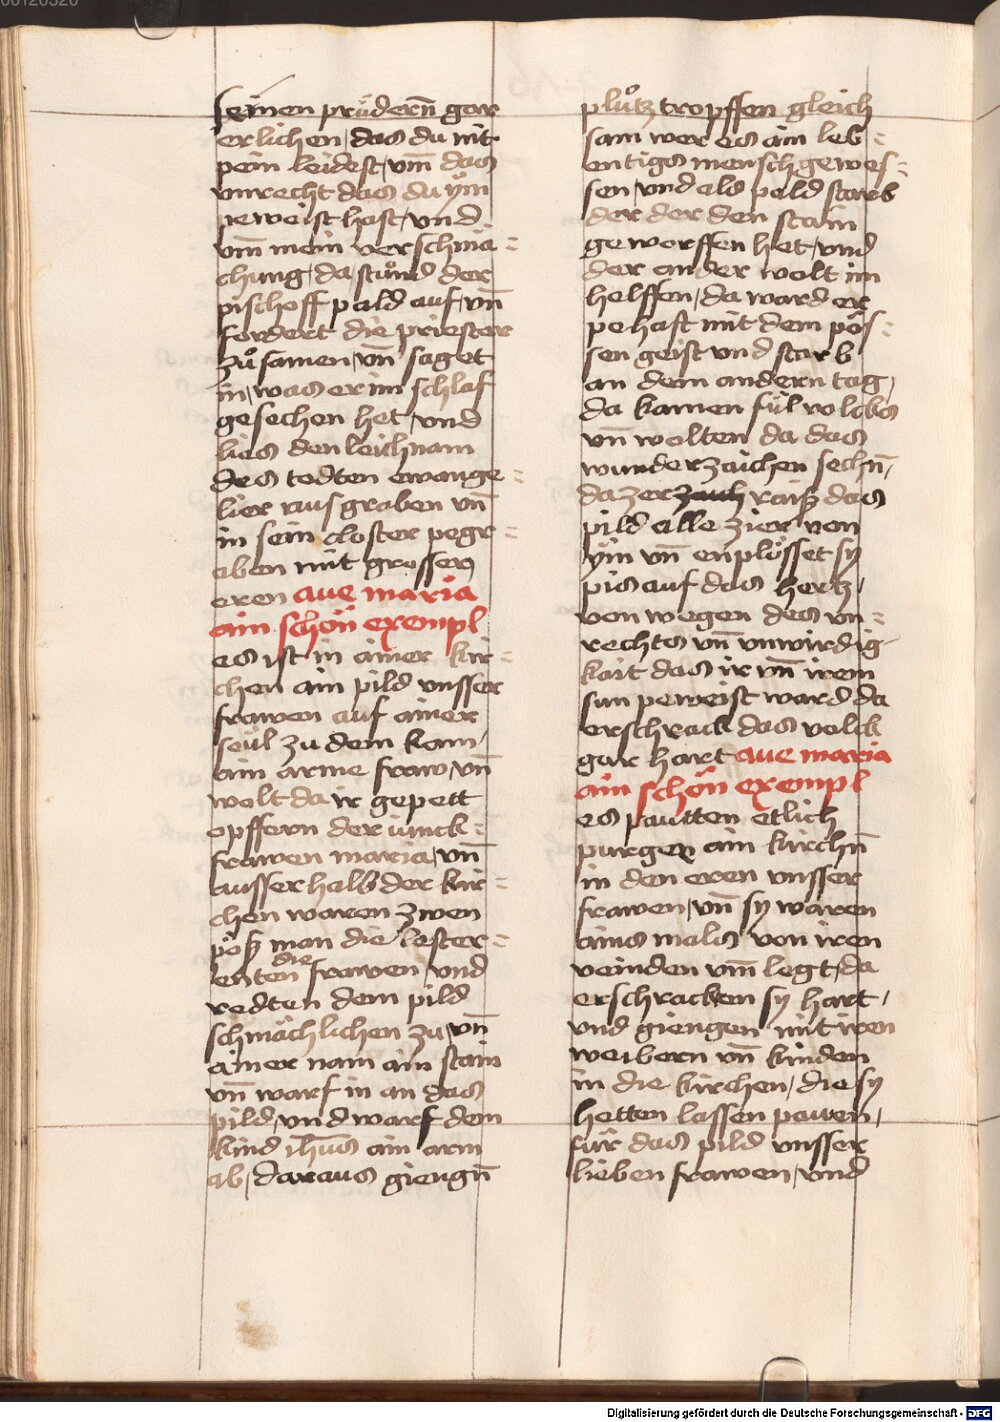 seinen prüdern̄ gar
erlichen, das du nit
pein leidest, vm̄ das
vnrecht das du ẏm
peweist hast, vnd
vm̄ mein verschmä=
chung, da stůnd der
pischoff pald auf, vn̄
fordert die priester
zů samen, vn̄ saget
in, was er im schlaf
gesechen het, vnd
lies den leichnam
des todten ewange=
lier aus graben vn̄
in sein closter pegr=
aben mit grossen
eren aue maria
ain schön exempl
es ist in ainer kir=
chen ain pild vnsser
frawen auf ainer
seül zu dem kam,
ain arme fraw, vn̄
wolt da ir gepett
opffern der iunck=
frawen maria, vn̄
ausserhalb der kir=
chen waren zwen
pöß man die lester=
enten die frawen vnd
redten dem pild
schmächlichen zu, vn̄
ainer nam ain stain
vn̄ warf in an das
pild, vnd warf dem
kind ih̄us ain arm
ab, daraus giengn̄
plůtz tropffen gleich
sam wer es ain leb=
entigs mensch gewes=
sen, vnd als pald starb
der der den stain
geworffen het, vnd
der ander wolt im
helffen, da ward er
pehaft mit dem pös=
sen geist vnd starb
an dem andern tag,
da kamen fül volcks
vn̄ wolten da das
wunderzaichen sechn̄,
da zer raiß das
pild alle zier von
ẏm vn̄ enplösset sy
pis auf das hertz,
von wegen des vn=
rechts vn̄ vnwirdig-
kait das ir vn̄ irem
sun peweist ward da
erschrack das volck
gar hart aue maria
ain schön exempl
es pautten etlich
purger ain kirchn̄
in den eren vnsser
frawen, vn̄ sy waren
ains mals von iren
veinden vm̄ legt, da
erschracken sy hart,
vnd giengen mit iren
weibern vn̄ kinden
in die kirchen, die sy
hetten lassen pawen,
für das pild vnsser
lieben frawen, vnd
Digitalisierung gefördert durch die Deutsche Forschungsgemeinschaft - DFG